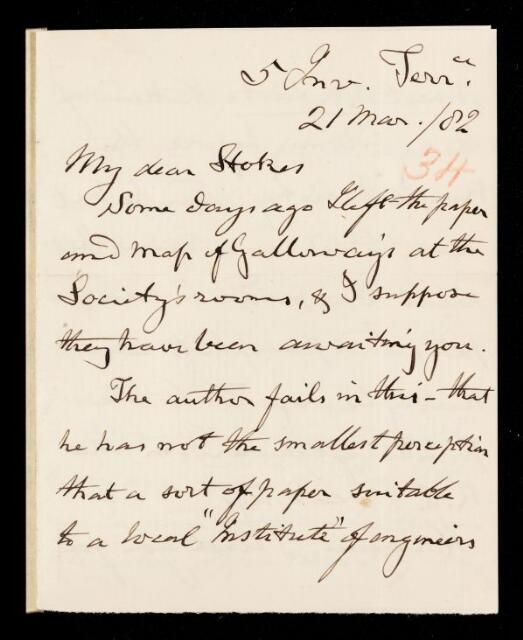 5 Inv. Terr.ce
21 Mar. /82
34
My dear Stokes
Some days ago I left the paper
and map of Galloway's at the
Society's rooms, & I suppose
they have been awaiting you.
The author fails in this – that
he has not the smallest perception
that a sort of paper suitable
to a local "Institute" of engineers